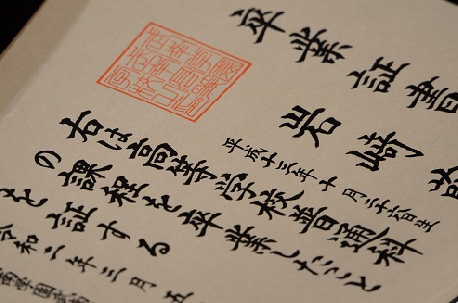 卒業証書
岩崎
平成十三年十月二十六日生
右は高等学校普通科
の課程を卒業したこと
を証する
令和二年三月五